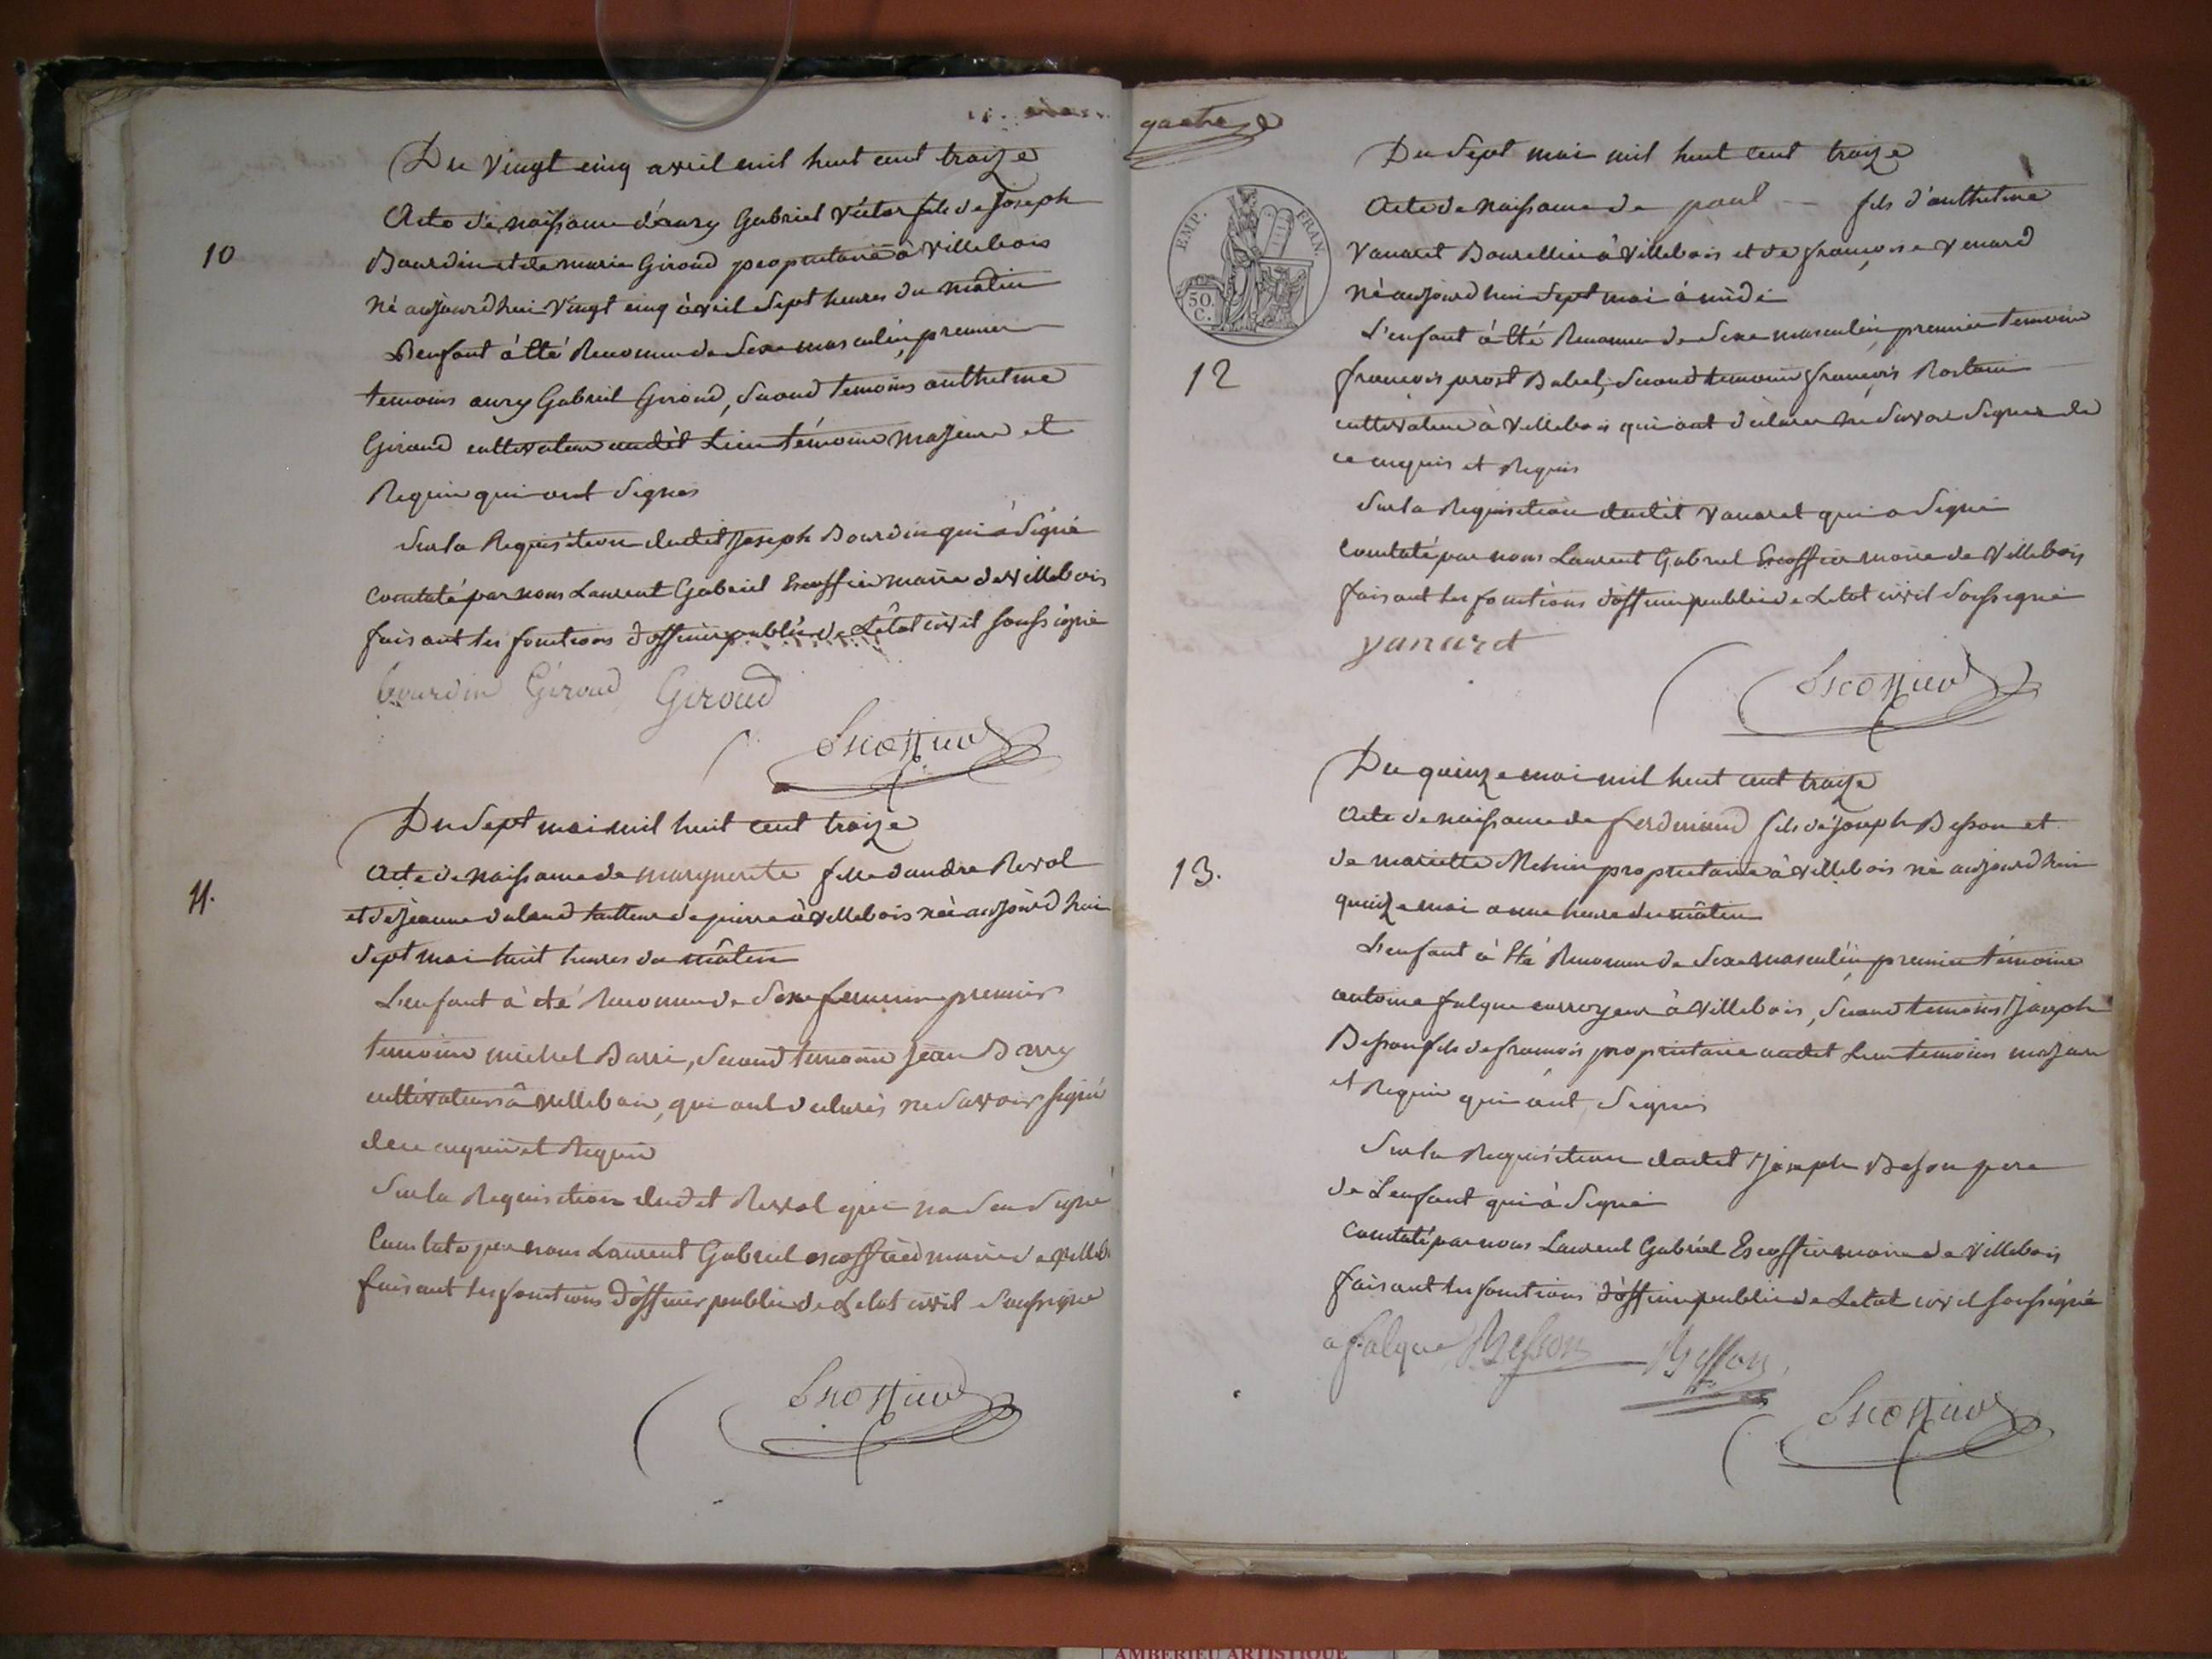 10
Du vingt cinq avril mil huit cent traize
Acte de naissance d'aury Gabriel Victor fils de Joseph
Bourdin et de marie Giroud propriétaire à Villebois
né aujourdhui vingt cinq avril sept heures du matin
L'enfant à été Reconnu de Sexe masculin, premier
temoins aury Gabriel Giroud, Second temoins anthelme
Giroud cultivateur audit Lieu témoins majeurs et
Requis qui ont Signés
Sur la Requisition dudit Joseph Bourdin qui à Signé
Constaté par nous Laurent Gabriel Escoffier maire de Villebois
faisant les fonctions d'officier public de Létat civil soussigné
bourdin Giroud Giroud
Escoffier
11.
Du Sept mai mil huit cent traize
Acte de naissance de marguerite fille dandre Reval
et de jeanne tailleur de pierre à Villebois née aujourdhui
Sept mai huit heures du matin
L'enfant à été Reconnu de Sexe feminin premier
temoins michel Barri, Second temoins jean Barry
cultivateurs à Villebois, qui ont declarés ne Savoir signé
de ce enquis et Requis
Sur la Requisition dudit Reval qui na Seu Signé
Constaté par nous Laurent Gabriel escoffier maire de villeb
faisant les fonctions d'officier public de Letat civil Soussigné
Escoffier
quatre
EMP. FRAN.
50 C.
12
Du Sept mai mil huit cent traize
Acte de naissance de paul fils d'anthelme
Vanaret Bourellier à Villebois et de françoise Venard
né aujourdhui Sept mai à midi
L'enfant à été Reconnu de Sexe masculin, premier temoins
françois prost Babel, Second temoins françois Rostain
cultivateur à Villebois qui ont déclarer ne Savoir Signer de
ce enquis et Requis
Sur la Requisition dudit Vanaret qui a Signé
Constaté par nous Laurent Gabriel Escoffier maire de Villebois
faisant les fonctions d'officier public de Letat civil Soussigné
vanaret
Escoffier
13.
Du quinze mai mil huit cent traize
Acte de naissance de ferdinand fils de joseph Besson et
de mariette propriétaire à Villebois né aujourdhui
quinze mai a une heure du mâtin
L'enfant à été Reconnu de Sexe masculin, premier témoins
antoine falque corroyeur à Villebois, Second temoins Joseph
Besson fils de francois propriétaire audit Lieu temoins majeur
et Requis qui ont Signés
Sur la Requisition dudit Joseph Besson pere
de L'enfant qui à Signé
Constaté par nous Laurent Gabriel Escoffier maire de Villebois
faisant les fonctions d'officier public de Letat civil soussigné
a falque Besson Besson
Escoffier
AMBERIEU ARTISTIQUE